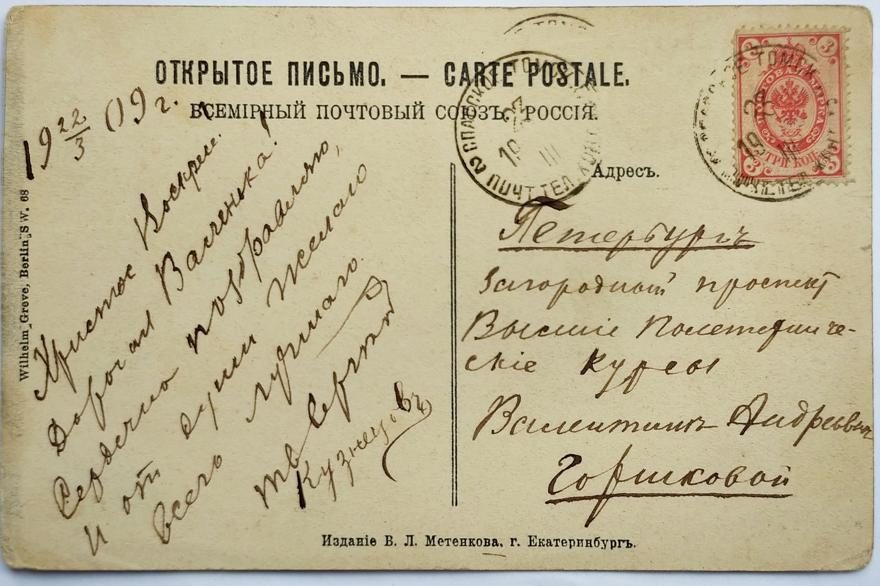 ОТКРЫТОЕ ПИСЬМО. — CARTE POSTALE.
ВСЕМІРНЫЙ ПОЧТОВЫЙ СОЮЗЪ, РОССІЯ.
19 22/3 09 г.
Христос Воскресе.
Дорогая Валенька!
Сердечно поздравляю,
и от души желаю
всего лучшаго.
тв Сергѣй
Кузнецовъ
Wilhelm Greve, Berlin S W. 68
СПАССКОЕ ТОМСК
22 III
19
ПОЧТ ТЕЛ
3 3
ТРИ КОП
Адресъ.
Петербургъ
Загородный проспект
Высшіе Политехниче-
скіе Курсы
Валентинѣ Андреевнѣ
Горшковой
Изданіе В. Л. Метенкова, г. Екатеринбургъ.